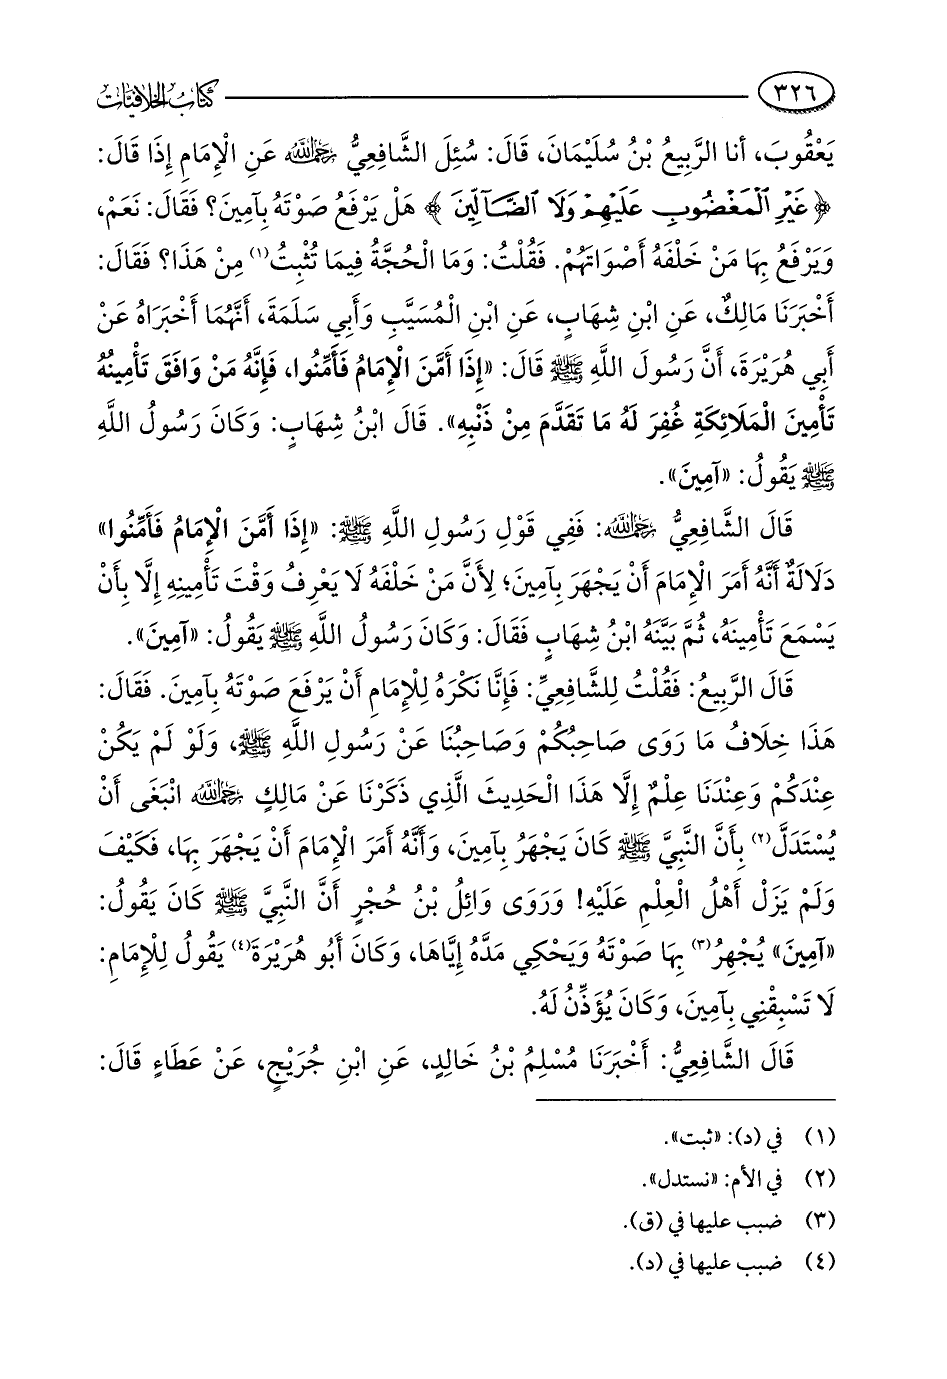 ٣٢٦ كتاب الخلافيات
يَعْقُوبَ، أنا الرَّبِيعُ بْنُ سُلَيْمَانَ، قَالَ: سُئِلَ الشَّافِعِيُّ رَحِمَهُ اللَّهُ عَنِ الْإِمَامِ إِذَا قَالَ:
﴿غَيْرِ الْمَغْضُوبِ عَلَيْهِمْ وَلَا الضَّآلِّينَ﴾ هَلْ يَرْفَعُ صَوْتَهُ بِآمِينَ؟ فَقَالَ: نَعَمْ،
وَيَرْفَعُ بِهَا مَنْ خَلْفَهُ أَصْوَاتَهُمْ. فَقُلْتُ: وَمَا الْحُجَّةُ فِيمَا تُثْبِتُ(١) مِنْ هَذَا؟ فَقَالَ:
أَخْبَرَنَا مَالِكٌ، عَنِ ابْنِ شِهَابٍ، عَنِ ابْنِ الْمُسَيَّبِ وَأَبِي سَلَمَةَ، أَنَّهُمَا أَخْبَرَاهُ عَنْ
أَبِي هُرَيْرَةَ، أَنَّ رَسُولَ اللَّهِ ﷺ قَالَ: «إِذَا أَمَّنَ الْإِمَامُ فَأَمِّنُوا، فَإِنَّهُ مَنْ وَافَقَ تَأْمِينُهُ
تَأْمِينَ الْمَلَائِكَةِ غُفِرَ لَهُ مَا تَقَدَّمَ مِنْ ذَنْبِهِ». قَالَ ابْنُ شِهَابٍ: وَكَانَ رَسُولُ اللَّهِ
ﷺ يَقُولُ: «آمِينَ».
قَالَ الشَّافِعِيُّ رَحِمَهُ اللَّهُ: فَفِي قَوْلِ رَسُولِ اللَّهِ ﷺ: «إِذَا أَمَّنَ الْإِمَامُ فَأَمِّنُوا»
دَلَالَةٌ أَنَّهُ أَمَرَ الْإِمَامَ أَنْ يَجْهَرَ بِآمِينَ؛ لِأَنَّ مَنْ خَلْفَهُ لَا يَعْرِفُ وَقْتَ تَأْمِينِهِ إِلَّا بِأَنْ
يَسْمَعَ تَأْمِينَهُ، ثُمَّ بَيَّنَهُ ابْنُ شِهَابٍ فَقَالَ: وَكَانَ رَسُولُ اللَّهِ ﷺ يَقُولُ: «آمِينَ».
قَالَ الرَّبِيعُ: فَقُلْتُ لِلشَّافِعِيِّ: فَإِنَّا نَكْرَهُ لِلْإِمَامِ أَنْ يَرْفَعَ صَوْتَهُ بِآمِينَ. فَقَالَ:
هَذَا خِلَافُ مَا رَوَى صَاحِبُكُمْ وَصَاحِبُنَا عَنْ رَسُولِ اللَّهِ ﷺ، وَلَوْ لَمْ يَكُنْ
عِنْدَكُمْ وَعِنْدَنَا عِلْمٌ إِلَّا هَذَا الْحَدِيثَ الَّذِي ذَكَرْنَا عَنْ مَالِكٍ رَحِمَهُ اللَّهُ انْبَغَى أَنْ
يُسْتَدَلَّ(٢) بِأَنَّ النَّبِيَّ ﷺ كَانَ يَجْهَرُ بِآمِينَ، وَأَنَّهُ أَمَرَ الْإِمَامَ أَنْ يَجْهَرَ بِهَا، فَكَيْفَ
وَلَمْ يَزَلْ أَهْلُ الْعِلْمِ عَلَيْهِ! وَرَوَى وَائِلُ بْنُ حُجْرٍ أَنَّ النَّبِيَّ ﷺ كَانَ يَقُولُ:
«آمِينَ» يُجْهِرُ(٣) بِهَا صَوْتَهُ وَيَحْكِي مَدَّهُ إِيَّاهَا، وَكَانَ أَبُو هُرَيْرَةَ(٤) يَقُولُ لِلْإِمَامِ:
لَا تَسْبِقْنِي بِآمِينَ، وَكَانَ يُؤَذِّنُ لَهُ.
قَالَ الشَّافِعِيُّ: أَخْبَرَنَا مُسْلِمُ بْنُ خَالِدٍ، عَنِ ابْنِ جُرَيْجٍ، عَنْ عَطَاءٍ قَالَ:
(١) في (د): «ثبت».
(٢) في الأم: «نستدل».
(٣) ضبب عليها في (ق).
(٤) ضبب عليها في (د).